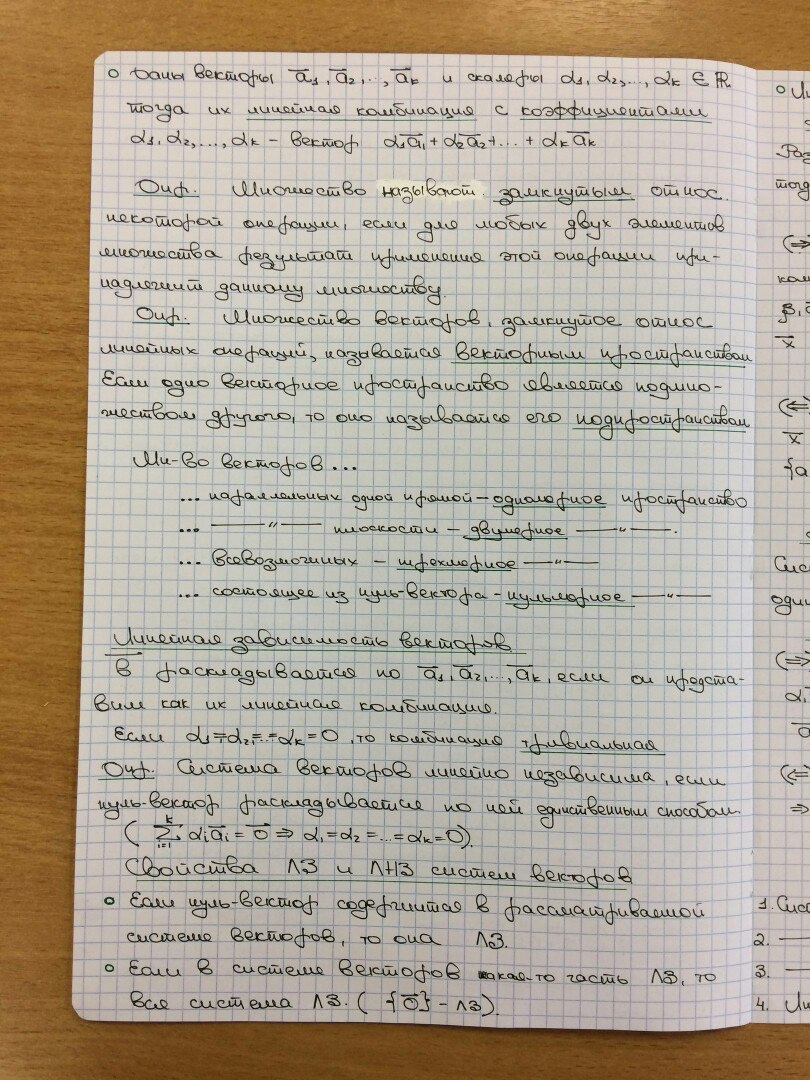 ∘ Даны векторы a̅₁, a̅₂, ..., a̅ₖ и скаляры α₁, α₂, ..., αₖ ∈ ℝ.
тогда их линейная комбинация с коэффициентами
α₁, α₂, ..., αₖ – вектор α₁a̅₁ + α₂a̅₂ + ... + αₖa̅ₖ
Опр. Множество называют замкнутым относ.
некоторой операции, если для любых двух элементов
множества результат применения этой операции при-
надлежит данному множеству.
Опр. Множество векторов, замкнутое относ
линейных операций, называется векторным пространством
Если одно векторное пространство является подмно-
жеством другого, то оно называется его подпространством
Мн-во векторов ...
... параллельных одной прямой – одномерное пространство
... —〃— плоскости – двумерное —〃—.
... всевозможных – трехмерное —〃—
... состоящее из нуль-вектора – нульмерное —〃—
Линейная зависимость векторов
в̅ раскладывается по a̅₁, a̅₂, ..., a̅ₖ, если он предста-
вим как их линейная комбинация.
Если α₁=α₂=...=αₖ=0, то комбинация тривиальная
Опр. Система векторов линейно независима, если
нуль-вектор раскладывается по ней единственным способом
( ∑ᵢ₌₁ᵏ αᵢa̅ᵢ = 0̅ ⇒ α₁=α₂=...=αₖ=0).
Свойства ЛЗ и ЛНЗ систем векторов
∘ Если нуль-вектор содержится в рассматриваемой
системе векторов, то она ЛЗ.
∘ Если в системе векторов какая-то часть ЛЗ, то
вся система ЛЗ. ( {0̅} – ЛЗ).
∘
(⇒)
β,
x̅
(⇐)
x̅
{a
(⇒)
α₁
(⇐)
⇒
1. Сис
2. —
3. —
4.